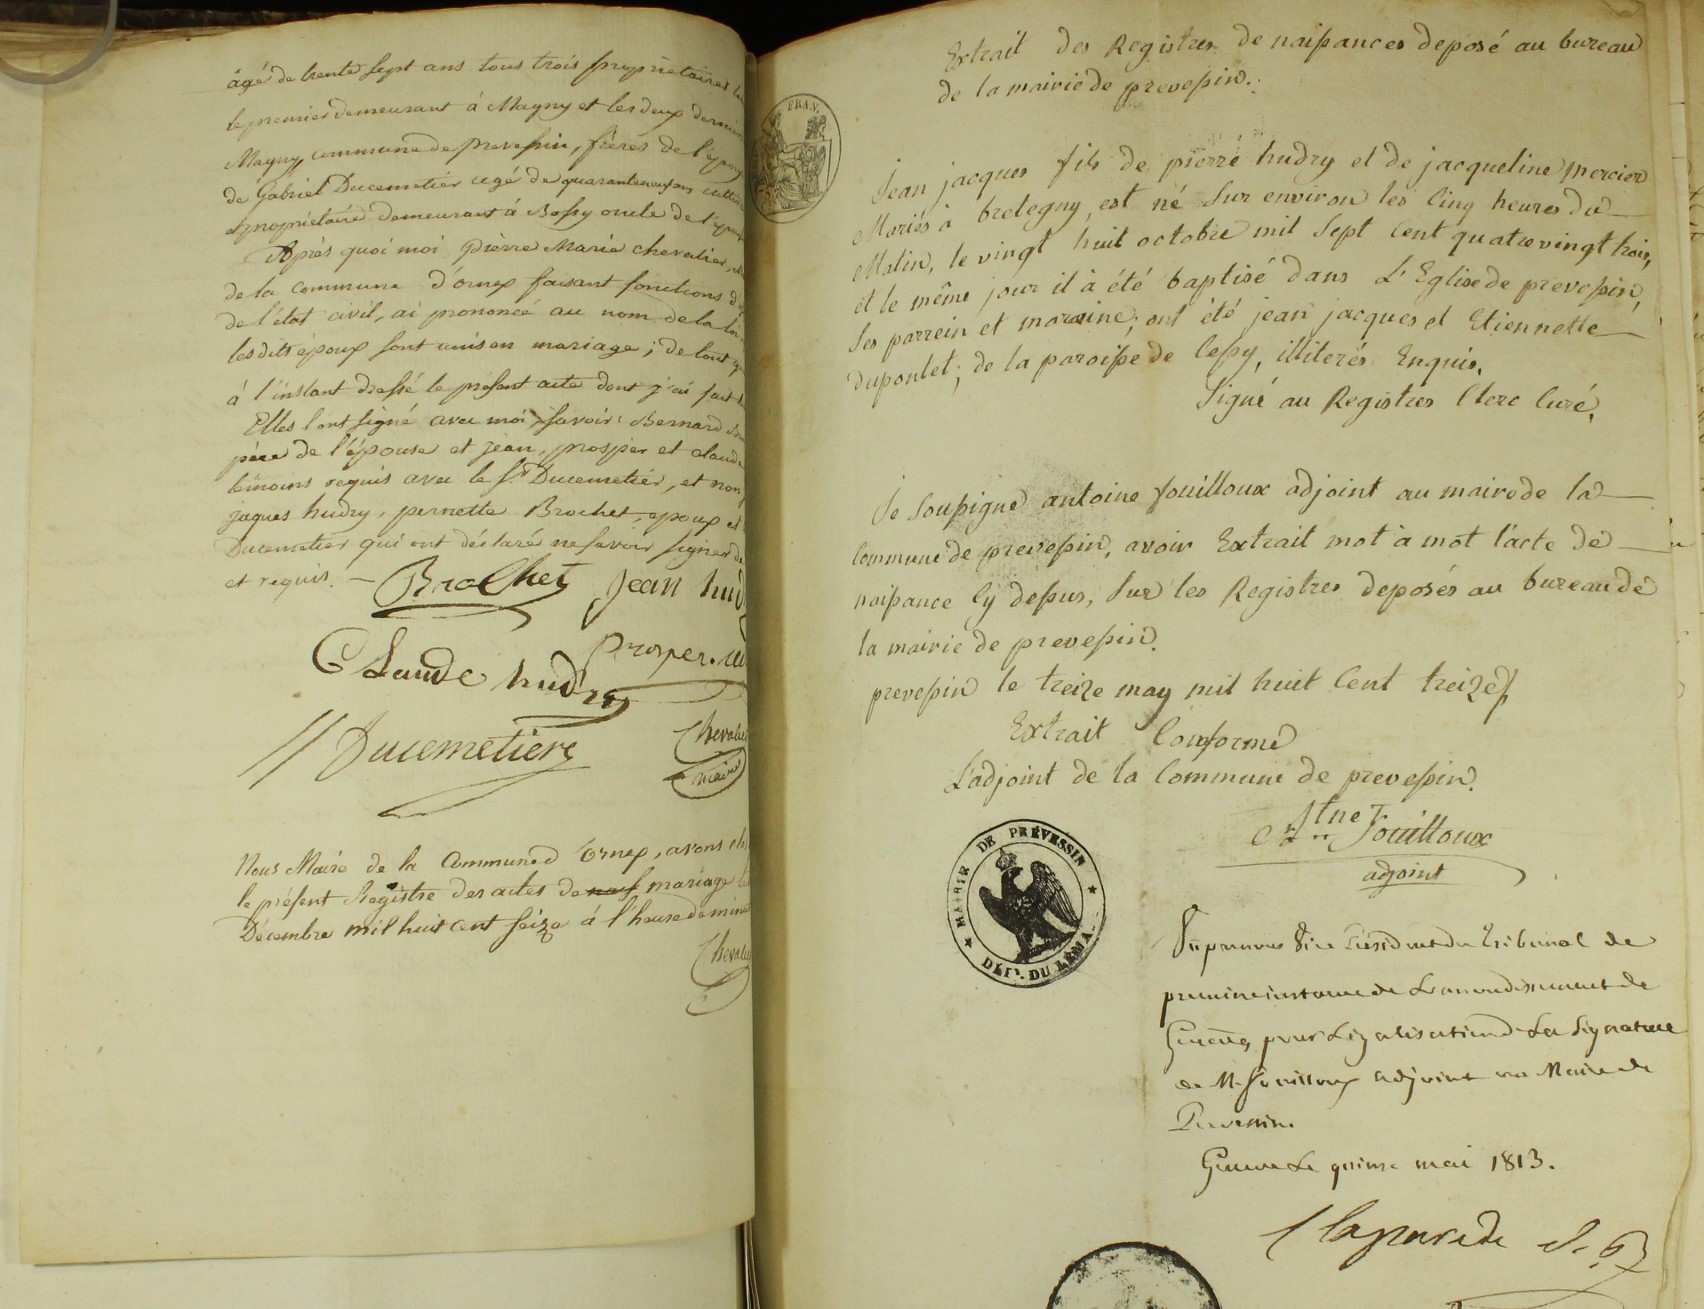 âgé de trente sept ans tous trois propriétaires
le premier demeurant à Magny et les deux
Magny commune de Prevessin, frères de
de Gabriel Ducemetier agé de quaranteneuf ans
propriétaire demeurant à Bossy oncle de
Après quoi moi Pierre Marie Chevalier,
de la commune d'ornex faisant fonctions
de l'état civil, ai prononcé au nom de la loi
lesdits époux sont unis en mariage; de tout
à l'instant dressé le présent acte dont j'ai fait
Elles l'ont signé avec moi savoir: Bernard
père de l'épouse et jean, prosper et claude
témoins requis avec le Sr. Ducemetier, et non
jaques hudry, pernette Brochet, epoux et
Ducemetier qui ont déclaré ne savoir signer de
et requis. Brochet jean hud
prosper
Claude hudry
Ducemetiere Chevalier
maire
Nous Maire de la Commune d'Ornex, avons
le présent Registre des actes de mariage
Décembre mil huit cent seize à l'heure de
Chevalier
FRAN.
Extrait des Registres de naissances deposé au bureau
de la mairie de prevessin.
Jean jacques fils de pierre hudry et de jacqueline mercier
Mariés à bretegny, est né sur environ les cinq heures du
Matin, le vingt huit octobre mil sept cent quatrevingt trois,
et le même jour il à été baptisé dans L'Eglise de prevessin,
ses parrein et maraine; ont été jean jacques et Etiennette
dupontet; de la paroisse de Cessy, illiterés Enquis.
Signé au Registres Clerc Curé.
Je soussigné antoine fouilloux adjoint au maire de la
Commune de prevessin, avoir Extrait mot à mot l'acte de
naissance Cy dessus, sur les Registres deposés au bureau de
la mairie de prevessin.
prevessin le treize may mil huit Cent treize
Extrait Conforme
L'adjoint de la Commune de prevessin.
Atne Fouilloux
adjoint
MAIRIE DE PRÉVESSIN
DÉPT. DU LÉMAN
Vu par nous Vice Président du Tribunal de
premiere instance de L'arrondissement de
Geneve, pour Légalisation de La Signature
de Mr. fouilloux adjoint au Maire de
Prevessin.
Geneve Le quinze mai 1813.
Claparede